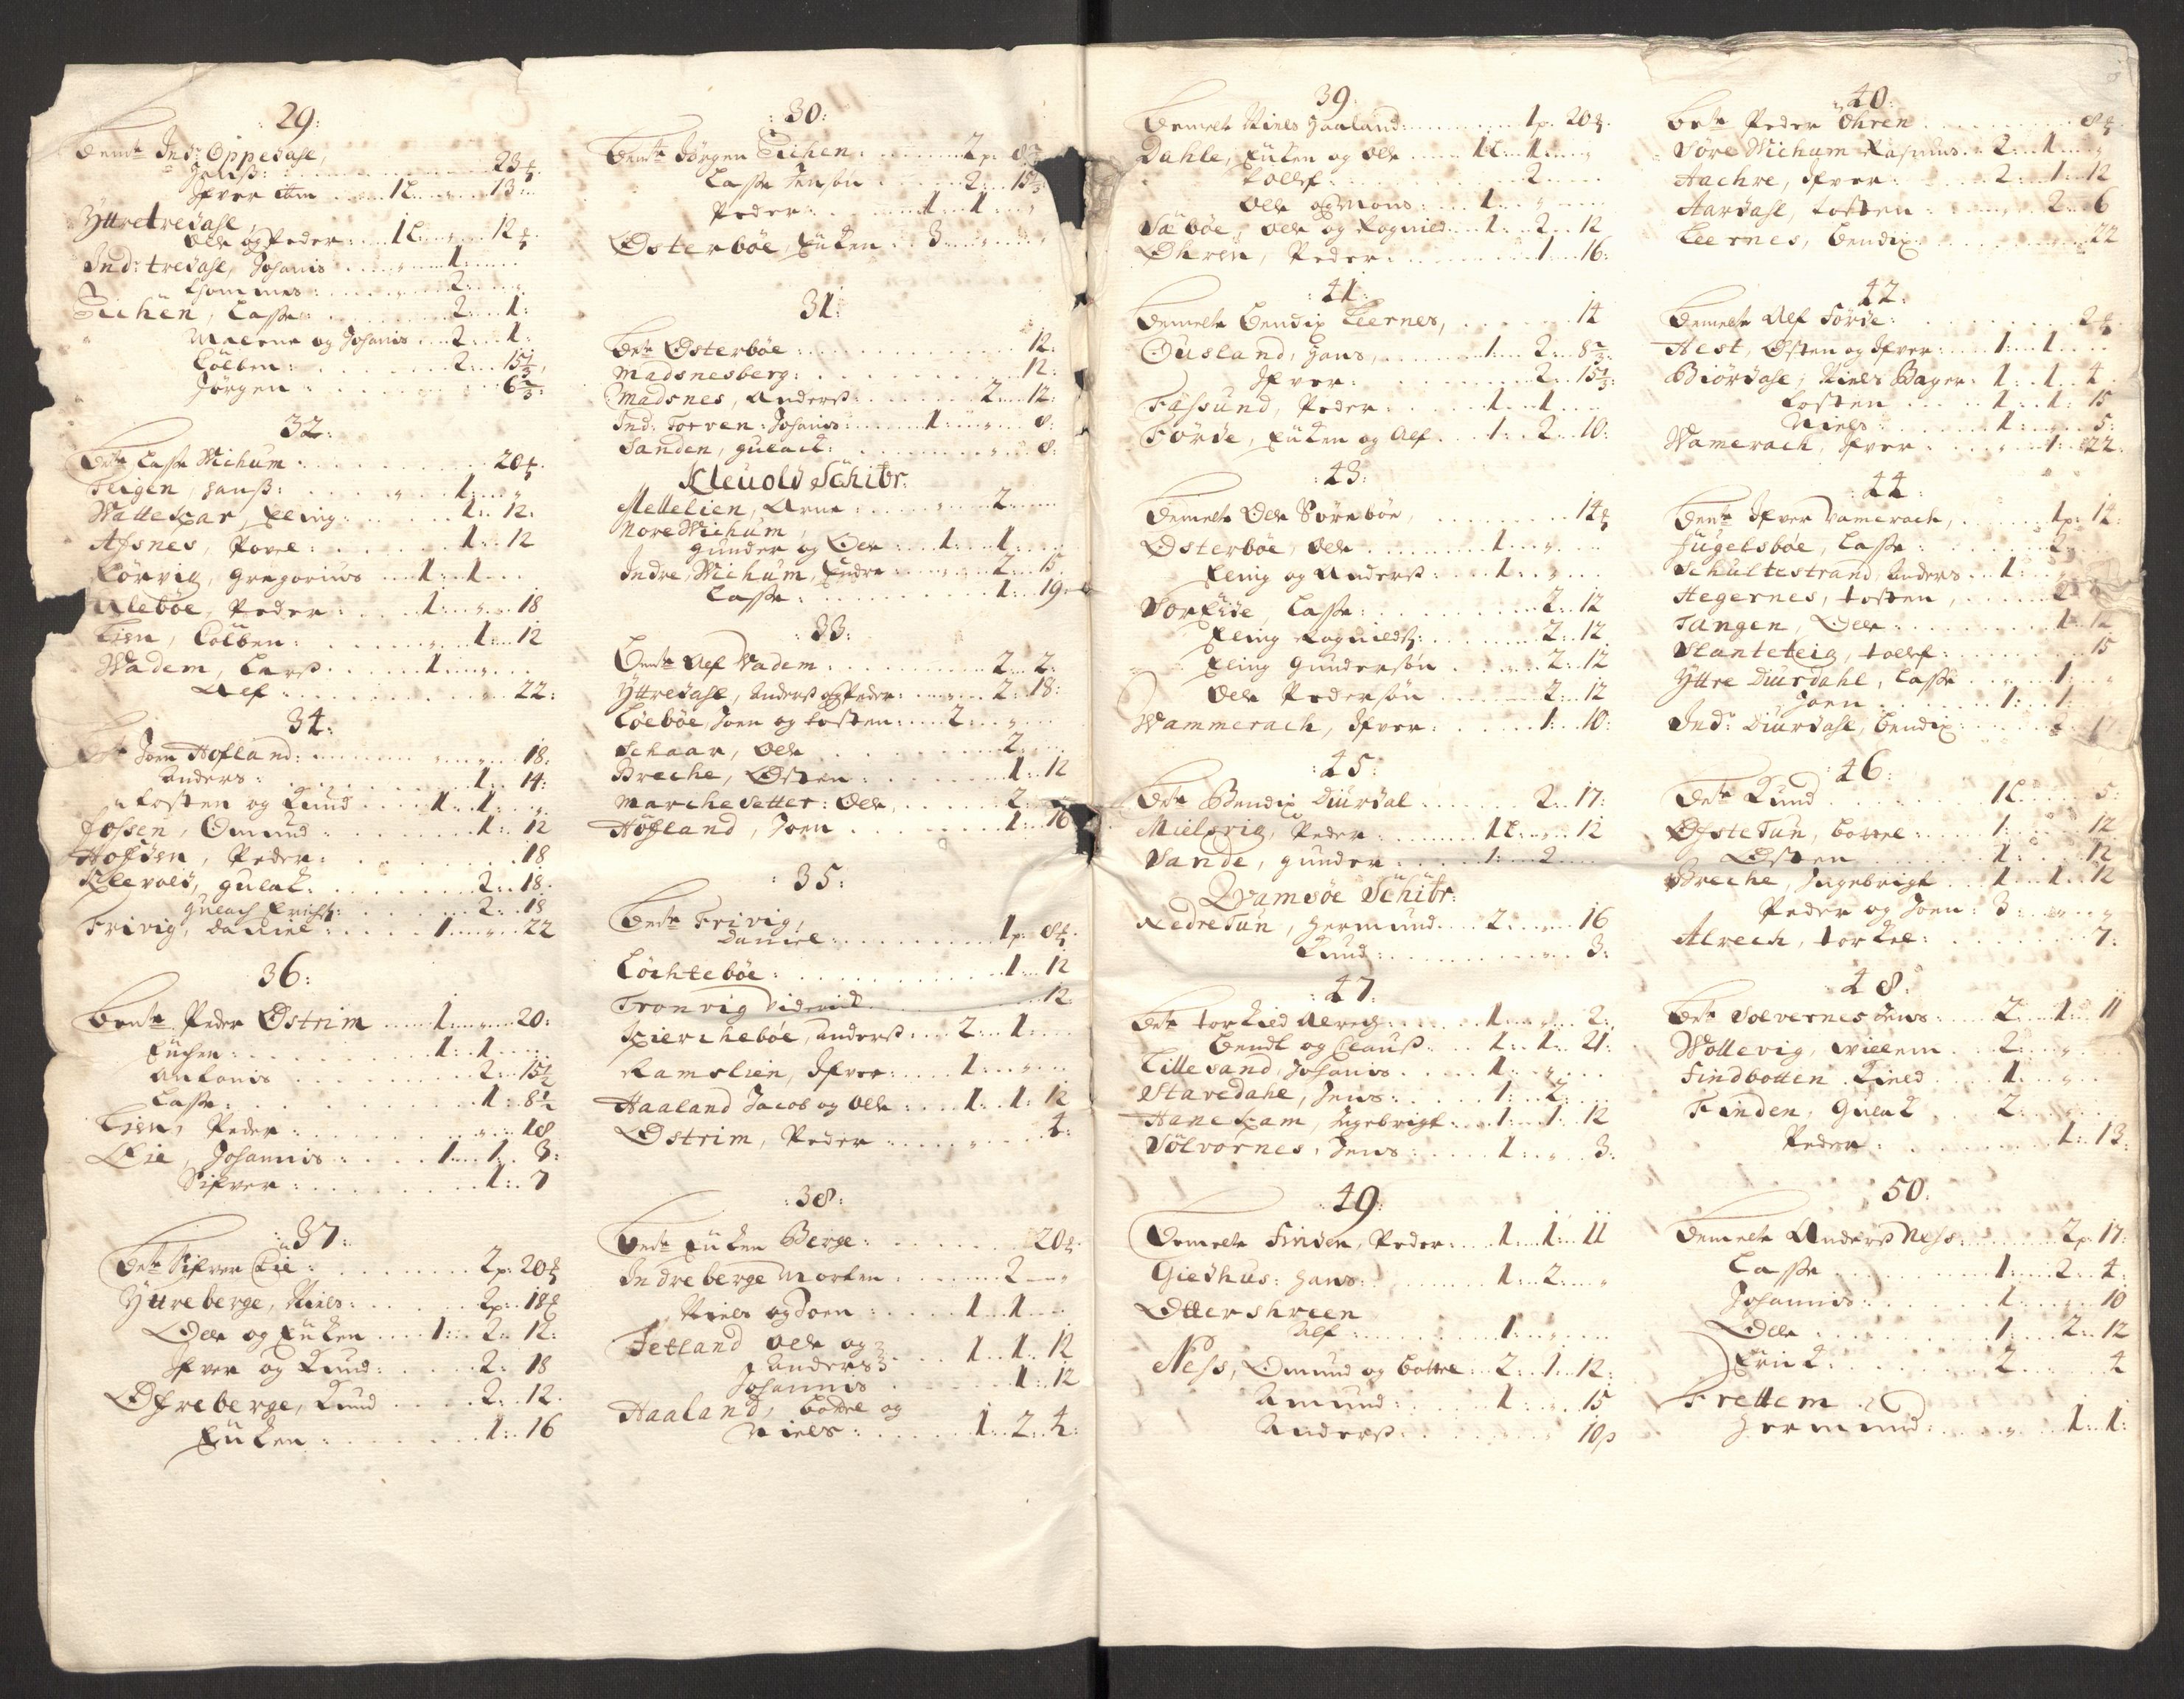 29:
Bem.te Ind: Oppedahl,
Joliß: . . . 23
Ifver ibm . . . 1L . . 13:
Yttretredahl,
Olle og Peder . . . 1L . . 12
Ind: tredahl, Johanis . . . 1 . .
Thommes: . . . 2 . .
Eichen, Lasse: . . . 2. 1:
Malene og Johanis . . 2. 1:
Colben: . . . 2. 15 1/3
Jörgen: . . . 6 2/3:
32:
Be.te Lasse Wichum . . . 20
Teigen, Hanß: . . . 1. .
Watteqar, Elling . . . 1. 12:
Assnes, Povel: . . . 1. 12
Lörvig, Gregorius . . 1. 1 . .
Alebøe, Peder: . . . 1. . 18
Lien, Colben: . . . 1. 12
Wadem, Larß . . . 1. .
Alf . . . 22:
34:
Be.te Joen Hofland: . . . 18:
Anders: . . . 1. 14:
Tosten og Knud . . . 1. 1. .
Jossen, Omund . . . 1. 12
Hofden, Peder: . . . 18
Klevold, Gulak: . . . 2. 18.
Gulach Erichß: . . . 2. 18
Frivig, Daniel: . . . 1. . 22
36:
Bem.te Peder Østrim . . . 1. . 20:
Euchen: . . . 1. 1. .
Antonis . . . 2. 15 1/2
Lasse: . . . 1. 8 1/2
Lien, Peder: . . . 18
Eie, Johannis: . . . 1. 1. 3:
Sifver: . . . 1. 7
37:
Be.te Sifver Eie: . . . 2p: 20
Yttreberge, Niels: . . . 2p: 18
Olle og Eüken . . . 1. 2. 12:
Ifver og Knud: . . . 2. 18
Øfreberge, Knud . . . 2. 12.
Eüken: . . . 1. 16
30:
Bem.te Jörgen Eichen: . . . 2p: 8 2/3
Lasse Jensön . . . 2. 15 1/3
Peder: . . . 1. 1. .
Østerböe, Eüken: . . 3. . .
31:
Be.te Østerböe: . . . 12:
Madsnesberg: . . . 12:
Madsnes, Anderß: . . . 2. 12:
Ind: Torven: Johanis: . . . 1. . 8:
Sanden, Gulack: . . . 8:
Kleuold Schibr.
Mellelien, Arne: . . . 2. .
Nore Wichum,
Gunder og Ole: . . 1. 1. .
Indre, Wichum, Endre . . . 2. 15.
Lasse: . . . 1. 19
33:
Bem.te Alf Wadem . . . 2. 2:
Yttredahl, Anderß og Peder: . . . 2. 18:
Löeböe, Joen og Tosten: . . . 2. . .
Schaar, Olle . . . 2. .
Breche, Østen: . . . 1. 12
Marchesetter: Olle . . . 2. .
Höfland, Joen . . . 1. 16
35:
Bem.te Frivig,
Daniel: . . . 1p: 8
Löchteböe: . . . 1. 12
Tronvig Diderick . . . 12.
Kiercheböe, Anderß . . . 2. 1. .
Ramslien, Ifver: . . . 1. . .
Haaland Jacob og Olle . . . 1. 1. 12
Østrim, Peder . . . 4:
38:
Bem.te Eüken Berge: . . . 20
Indreberge Morten . . . 2. .
Niels og Joen: . . . 1. 1. .
Fetland Olle og
Anders . . . 1. 1. 12
Johannis . . . 1. 12
Haaland, Bottel og
Niels: . . . 1. 2. 4:
39:
Bemelte Niels Haaland: . . . 1p. 20
Dahle, Eüken og Olle . . . 1L. 1. .
Tollef: . . . 2. .
Olle og Mons: . . 1. . .
Sæböe, Olle og Ragnild . . . 1. 2. 12
Øhren, Peder: . . . 1. 16:
41:
Bemelte Bendix Leernes, . . . 14
Ousland, Hans, . . . 1. 2. 8 2/3:
Ifver: . . . 2. 15 1/3:
Fassund, Peder: . . . 1. 1. .
Förde, Eüken og Alf . . 1. 2. 10:
43:
Bemelte Olle Söreböe . . . 14
Østerböe, Olle . . . 1. . .
Elling og Anderß: . . . 1. . .
Sörside Lasse: . . . 2. 12
Elling Ragnildß: . . . 2. 12
Elling Gundersön . . . 2. 12
Olle Pedersön . . . 2. 12
Wammerach, Ifver: . . . 1. 10:
45:
Be.te Bendix Diürdal . . . 2. 17:
Mielsvig, Peder: . . . 1L. . 12
Sande, Gunder . . . 1. 2. .
Qvamsöe Schibr:
Nedretun, Hermund . . . 2. . 16
Knud: . . . 3:
47:
Be.te Torkild Alrech: . . . 1. . 2:
Bendt og Clauß . . 1. 1. 21:
Lillesand, Johanis . . . 1. . .
Staredahl, Jens: . . . 1. 2. .
Hanekam, Ingebrigt . . . 1. 1. 12
Sölvornes, Jens: . . . 1. . 3:
49:
Bemelte Finden, Peder: . . . 1. 1. 11
Giedhus: Hans: . . . 1. 2. .
Ottershreen
Alf: . . . 1. . .
Ness, Omund og Bottel . . 2. 1. 12:
Amund: . . . 1. . 15
Anderß . . . 10p
40:
Be.te Peder Öhren . . . 8
Söre Wichum Rasmus . . 2. 1. .
Aachre, Ifver: . . . 2. 1. 12
Aardahl, Tosten: . . . 2. 6
Leernes, Bendix: . . . 22
42:
Bemelte Alf Förde: . . . 2
Hest, Østen og Ifver: . . . 1. 1. .
Biördahl, Niels Bager: 1. 1. 4.
Tosten . . . 1. 1. 15
Niels: . . . 1. . 5:
Wamerach, Ifver . . . 1. 22.
44:
Bem.te Ifver Wamerach, . . . 1p: 14:
Fugelsböe, Lasse: . . . 2. .
Schultestrand, Anders . . 1. .
Hegernes, Tosten, . . . 2
Tangen, Olle: . . . 1. 12
Slanteteig, Tollef: . . . 15
Yttre Diürdahl, Lasse . . . 1. .
Joen . . . 1. 1.
Ind: Diürdahl, Bendix: . . . 17
46:
Be.te Knud . . . 1L. . 5:
Øfstetun, Bottel: . . . 1. . 12
Østen . . . 1. . 12
Breche, Ingebrigt . . . 1. 1. 12
Peder og Joen: 3. . .
Alrech, Torkel: . . . 7:
48:
Be.te Solvernes Jens: . . . 2. 1. 11
Wollevig, Willem . . . 2. . .
Findbotten Kield . . . 1. . .
Finden, Gulak . . . 2. . .
Peder: . . . 1. 13:
50:
Bemelte Anderß Ness: . . . 2p. 17:
Lasse . . . 1. 2. 4.
Johannis: . . . 1. . 10
Olle . . . 1. 2. 12
Erick: . . . 2. 4
Frettem
Hermund: . . . 1. 1: